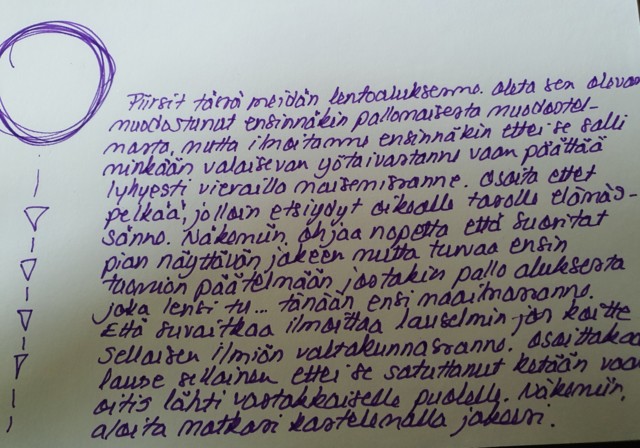 Piirsit tässä meidän lentoaluksemme. Oleta sen olevan
muodostunut ensinnäkin pallomaisesta muodostel-
masta, mutta ilmoitamme ensinnäkin ettei se salli
minkään valaisevan yötaivastanne vaan päättää
lyhyesti vierailla maisemissanne. Osoita ettet
pelkää, jolloin etsiydyt oikealle tasolle elämäs-
sänne. Näkemiin, ohjaa nopetta että suoritat
pian näyttävän jakeen mutta turvaa ensin
tuomion päätelmään jostakin pallo aluksesta
joka lensi tu... tänään ensi maailmassanne.
Että suvaitkaa ilmoittaa lauselmin jos koitte
sellaisen ilmiön valtakunnassanne. Osoittakaa
lause sellainen ettei se satuttanut ketään vaan
oitis lähti vastakkaiselle puolelle. Näkemiin,
aloita matkasi kastelemalla jakeesi.